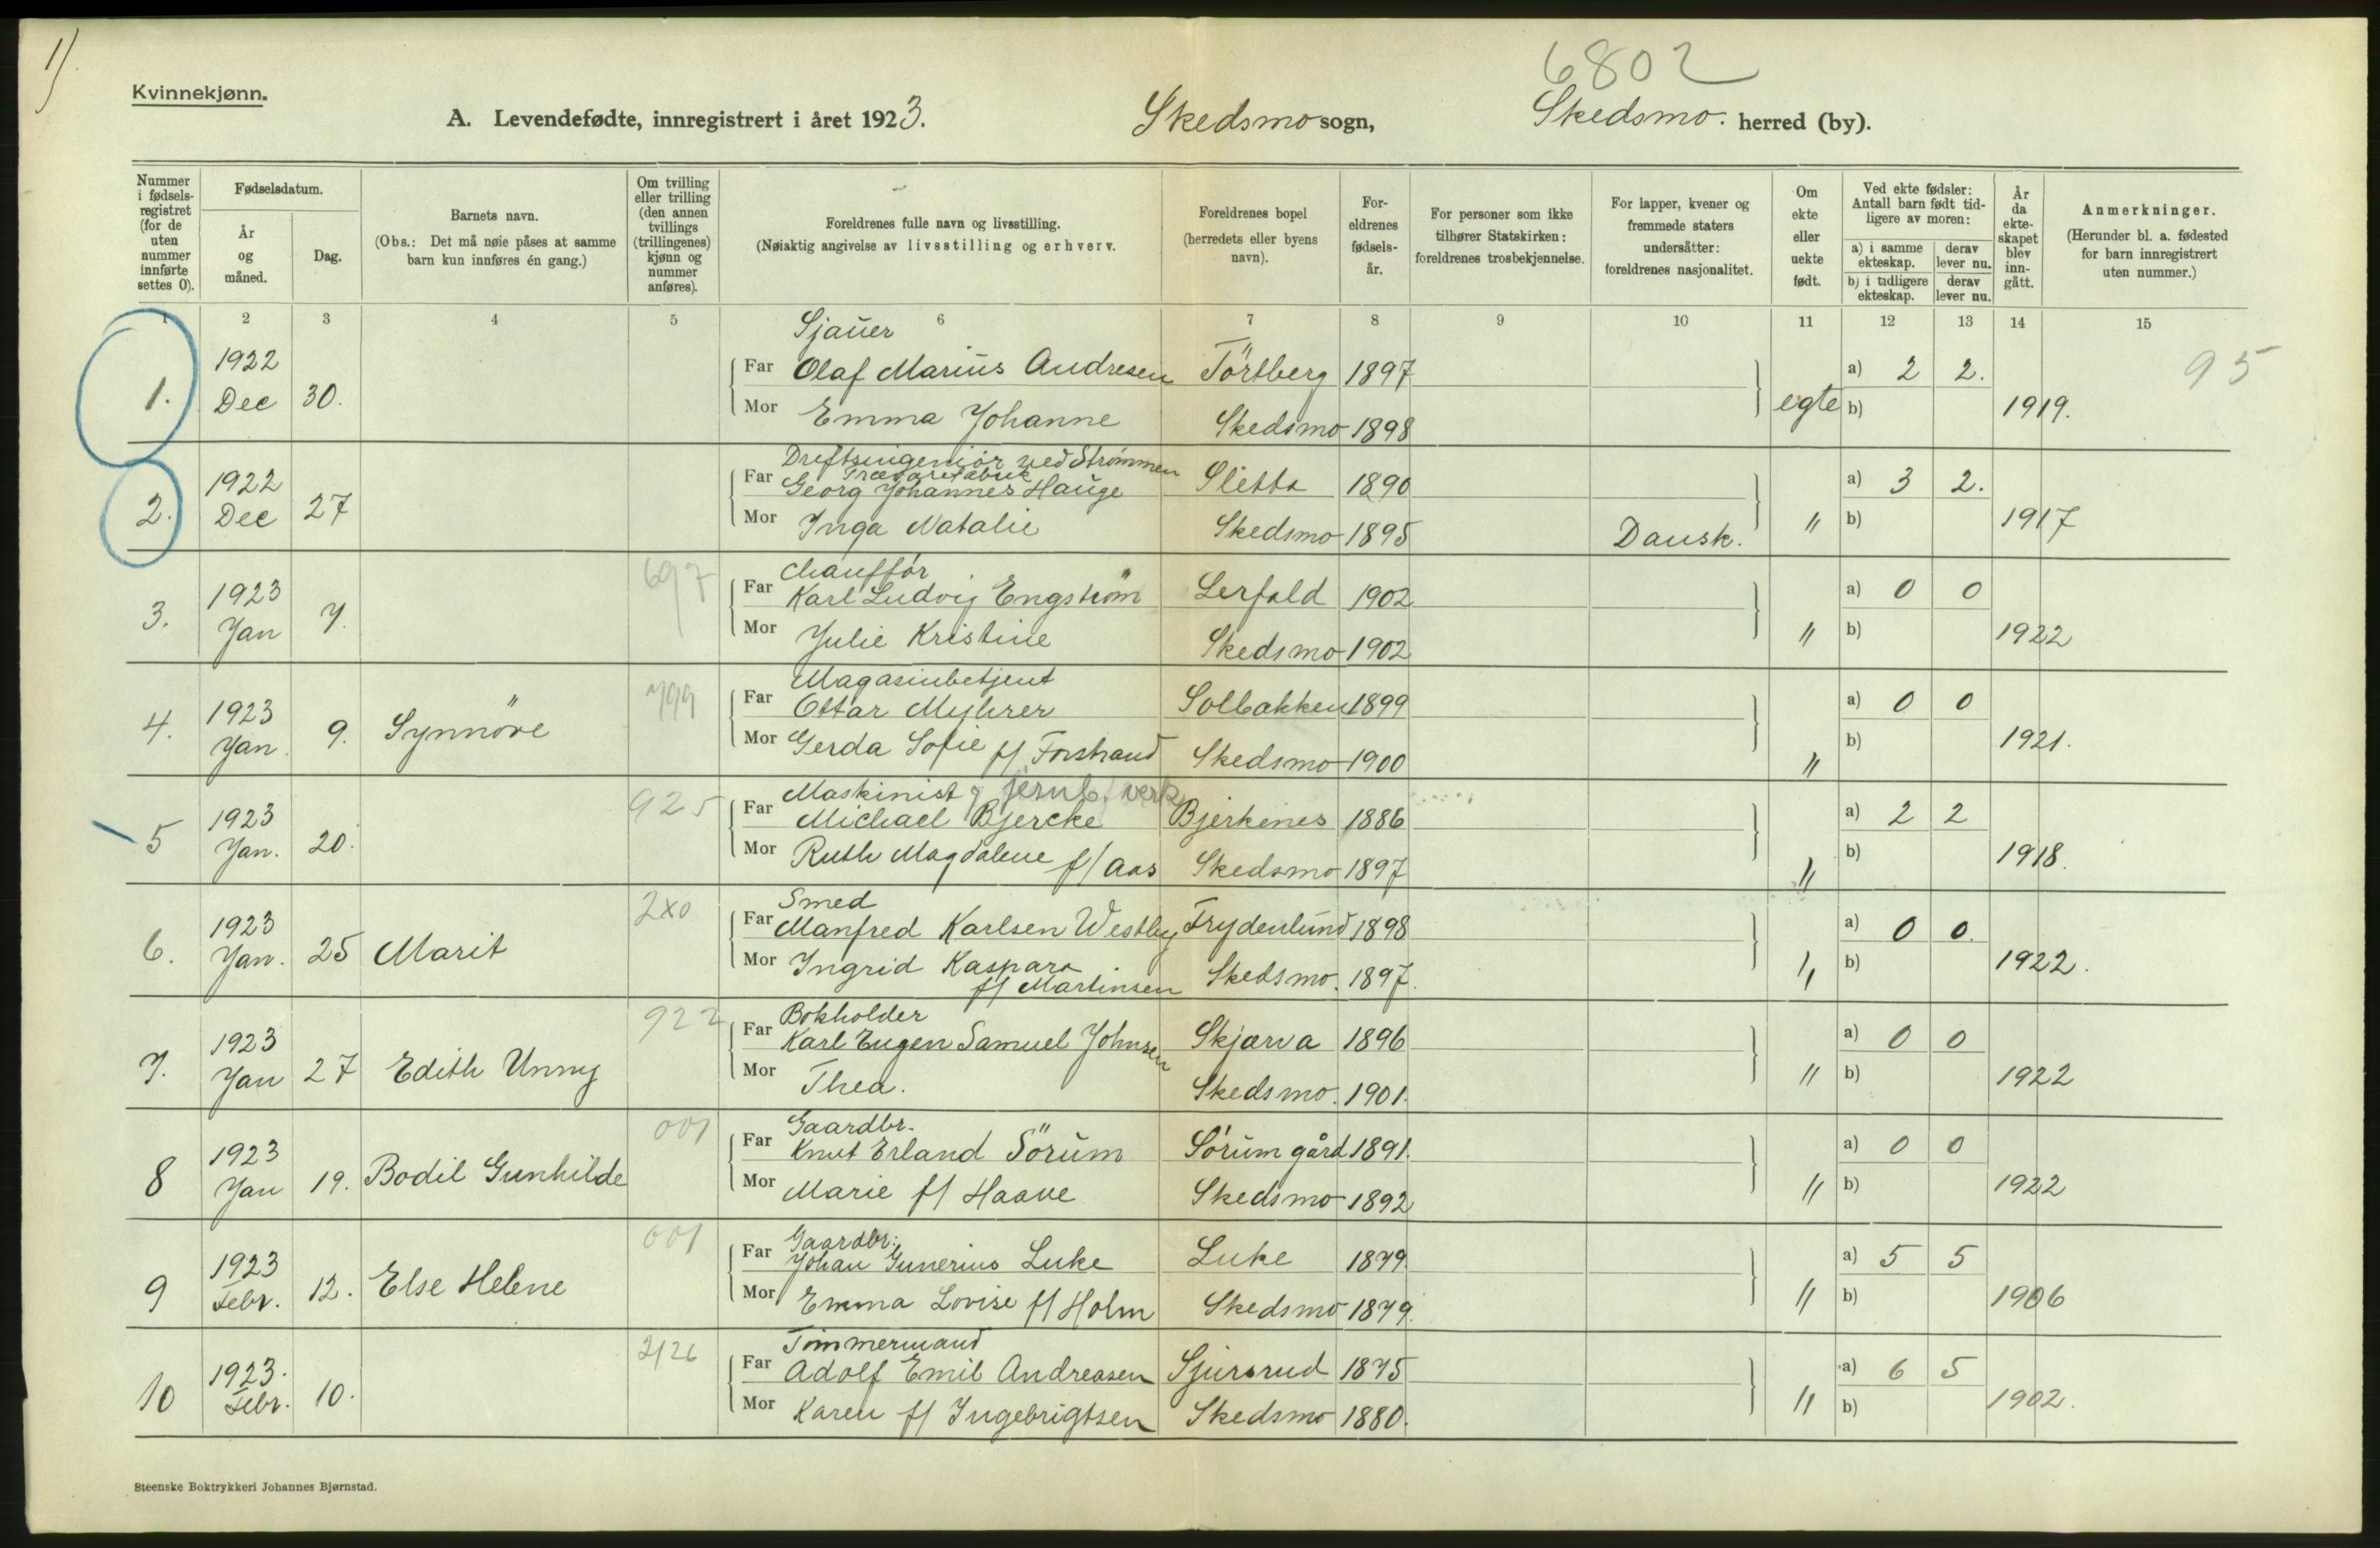 1)
6802
Kvinnekjønn.
A. Levendefødte, innregistrert i året 1923. Skedsmo sogn, Skedsmo. herred (by).
Nummer i fødselsregistret (for de uten nummer innførte settes 0).
Fødselsdatum.
År og måned.
Dag.
Barnets navn.
(Obs.: Det må nøie påses at samme barn kun innføres én gang.)
Om tvilling eller trilling (den annen tvillings (trillingenes) kjønn og nummer anføres).
Foreldrenes fulle navn og livsstilling.
(Nøiaktig angivelse av livsstilling og erhverv.
Foreldrenes bopel (herredets eller byens navn).
Foreldrenes fødselsår.
For personer som ikke tilhører Statskirken: foreldrenes trosbekjennelse.
For lapper, kvener og fremmede staters undersåtter: foreldrenes nasjonalitet.
Om ekte eller uekte født.
Ved ekte fødsler: Antall barn født tidligere av moren:
a) i samme ekteskap. derav lever nu.
b) i tidligere ekteskap. derav lever nu.
År da ekteskapet blev inngått.
Anmerkninger.
(Herunder bl. a. fødested for barn innregistrert uten nummer.)
1 2 3 4 5 6 7 8 9 10 11 12 13 14 15
Sjauer
1922 Far Olaf Marius Andresen Törtberg 1897 a) 2 2. 95
1. Dec 30. Mor Emma Johanne Skedsmo 1898 egte b) 1919.
Driftsingeniör ved Strømmen
Trævarefabrik
1922 Far Georg Johannes Hauge Sletta 1890 a) 3 2.
2. Dec 27 Mor Inga Natalie Skedsmo 1895 Dansk. " b) 1917
697 Chaufför
1923 Far Karl Ludvig Engström Lerfald 1902 a) 0 0
3. Jan 7. Mor Julie Kristine Skedsmo 1902 " b) 1922
799 Magasinbetjent
1923 Far Ottar Myhrer Solbakken 1899 a) 0 0
4. Jan. 9. Synnöve Mor Gerda Sofie f/ Forstrand Skedsmo 1900 " b) 1921.
925 Maskinist jernb. verk
1923 Far Michael Bjercke Bjerkenes 1886 a) 2 2
5 Jan. 20. Mor Ruth Magdalene f/ Aas Skedsmo 1897 " b) 1918.
2x0 Smed
1923 Far Manfred Karlsen Westby Frydenlund 1898 a) 0 0.
6. Jan. 25 Marit Mor Ingrid Kaspara f/ Martinsen Skedsmo. 1897. " b) 1922.
922 Bokholder
1923 Far Karl Eugen Samuel Johnsen Skjærva 1896 a) 0 0
7. Jan 27 Edith Unny Mor Thea. Skedsmo. 1901. " b) 1922
001 Gaardbr.
1923 Far Knut Erland Sörum Sörum gård 1891. a) 0 0
8 Jan 19. Bodil Gunhilde Mor Marie f/ Haave Skedsmo 1892 " b) 1922
001 Gaardbr.
1923 Far Johan Gunerius Luke Luke 1879. a) 5 5
9 Febr. 12. Else Helene Mor Emma Lovise f/ Holm Skedsmo 1879. " b) 1906
2126 Tömmermand
1923. Far Adolf Emil Andreasen Sjursrud 1875 a) 6 5
10 Febr. 10. Mor Karen f/ Ingebrigtsen Skedsmo 1880. " b) 1902.
Steenske Boktrykkeri Johannes Bjørnstad.